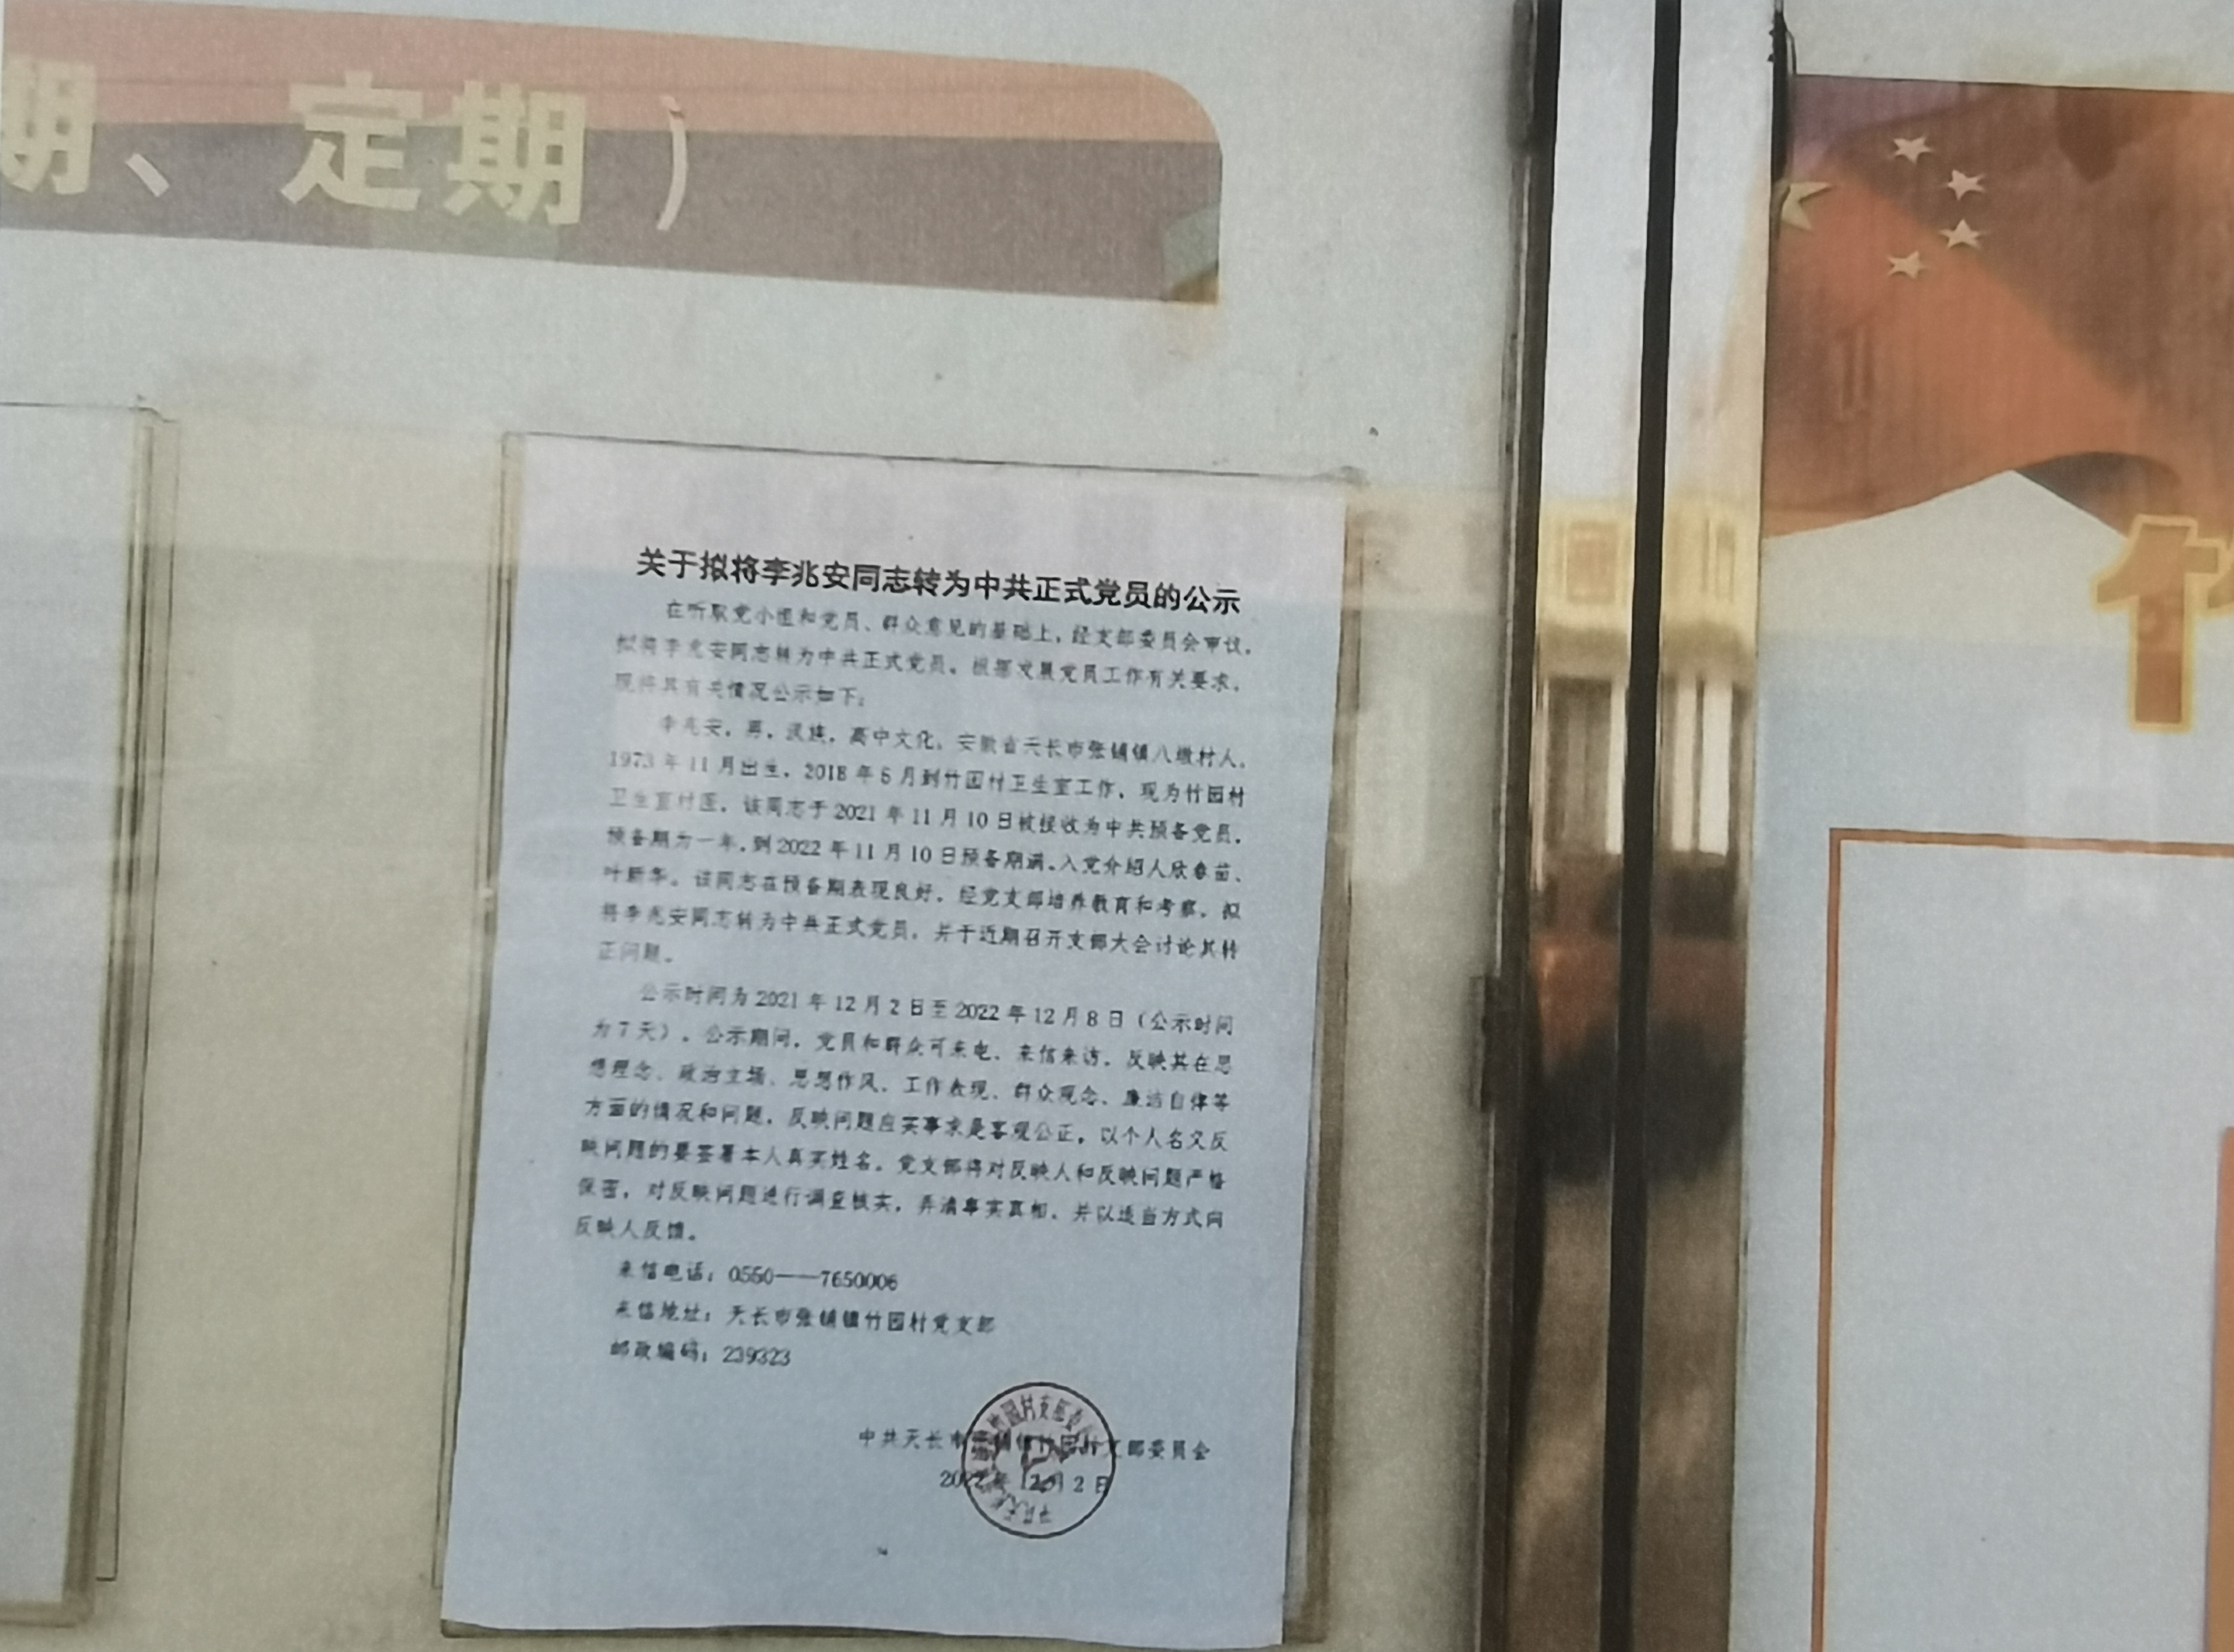 期、定期）
关于拟将李兆安同志转为中共正式党员的公示
在听取党小组和党员、群众意见的基础上，经支部委员会审议，
拟将李兆安同志转为中共正式党员。根据发展党员工作有关要求，
现将其有关情况公示如下：
李兆安，男，汉族，高中文化，安徽省天长市张铺镇八墩村人，
1973年11月出生，2018年6月到竹园村卫生室工作，现为竹园村
卫生室村医。该同志于2021年11月10日被接收为中共预备党员，
预备期为一年，到2022年11月10日预备期满。入党介绍人欣春苗、
叶新华。该同志在预备期表现良好，经党支部培养教育和考察，拟
将李兆安同志转为中共正式党员，并于近期召开支部大会讨论其转
正问题。
公示时间为2021年12月2日至2022年12月8日（公示时间
为7天）。公示期间，党员和群众可来电、来信来访，反映其在思
想理念、政治立场、思想作风、工作表现、群众观念、廉洁自律等
方面的情况和问题，反映问题应实事求是客观公正。以个人名义反
映问题的要签署本人真实姓名。党支部将对反映人和反映问题严格
保密，对反映问题进行调查核实，弄清事实真相，并以适当方式向
反映人反馈。
来信电话：0550——7650006
来信地址：天长市张铺镇竹园村党支部
邮政编码：239323
中共天长市张铺镇竹园村支部委员会
2022年12月2日